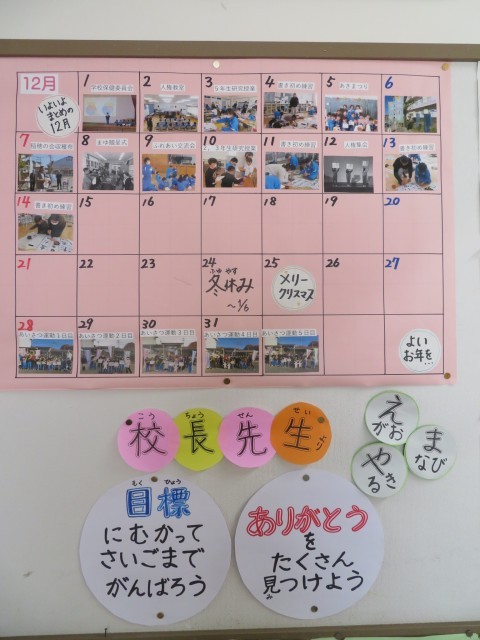 12月
いよいよ
まとめの
12月
1
学校保健委員会
2
人権教室
3
5年生研究授業
4
書き初め練習
5
あきまつり
6
7
8
9
ふれあい交流会
10
2、3年生研究授業
11
書き初め練習
12
人権集会
13
書き初め練習
14
書き初め練習
15
16
17
18
19
20
21
22
23
24
ふゆ やす
冬休み
～1/6
25
メリー
クリスマス
26
27
28
あいさつ運動1日目
29
あいさつ運動2日目
30
あいさつ運動3日目
31
あいさつ運動4日目
あいさつ運動5日目
よい
お年を…
こう ちょう せん せい
校長先生より
えがお
まなび
やるき
もく ひょう
目標
にむかって
さいごまで
がんばろう
ありがとう
を
たくさん
見つけよう
み